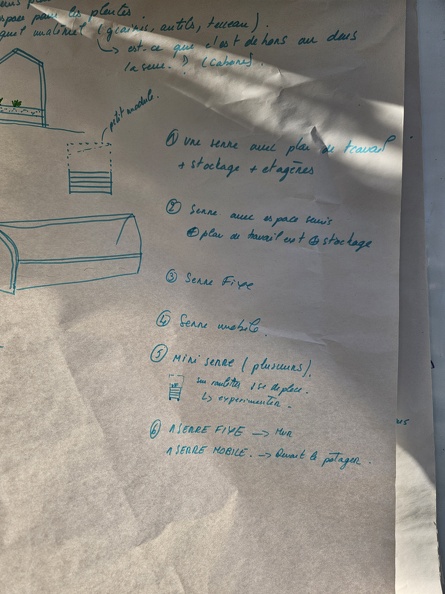 space pour les plantes.
quel matériel (graines, outils, terreau).
↳ est-ce que c'est dehors ou dans
la serre ? (cabane).
petit module.
① une serre avec plan de travail
+ stockage + etagères
② Serre avec espace semis
⊕ plan de travail ext ⊕ stockage
③ Serre Fixe
④ Serre mobile.
⑤ Mini serre (plusieurs).
sur roulettes, se deplace.
↳ experimenter.
⑥ 1 SERRE FIXE → Mur
1 SERRE MOBILE. → Devant le potager.